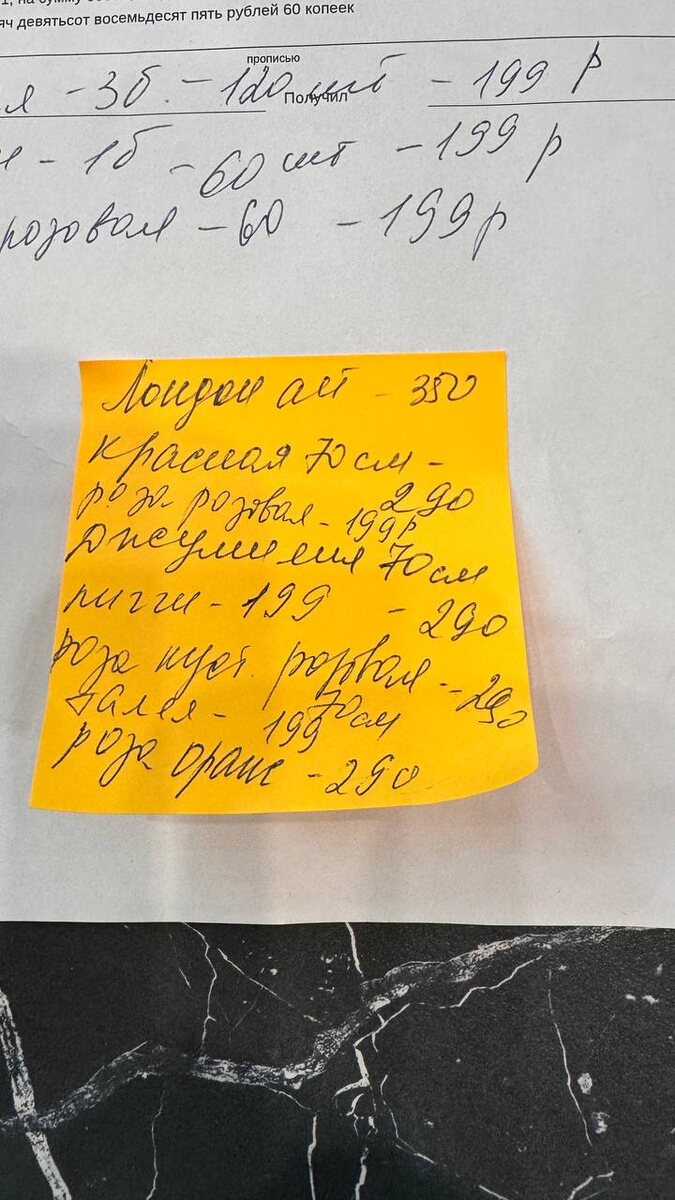 яч девятьсот восемьдесят пять рублей 60 копеек
прописью
я - 3б. - 120 шт - 199 р
Получил
и - 1б - 60 шт - 199 р
розовая - 60 - 199 р
Лондон аи - 350
красная 70 см -
290
роза розовая - 199 р
джумилия 70 см
пигги - 199 - 290
роза куст. розовая - 290
70 см
талея - 199
роза оранж - 290